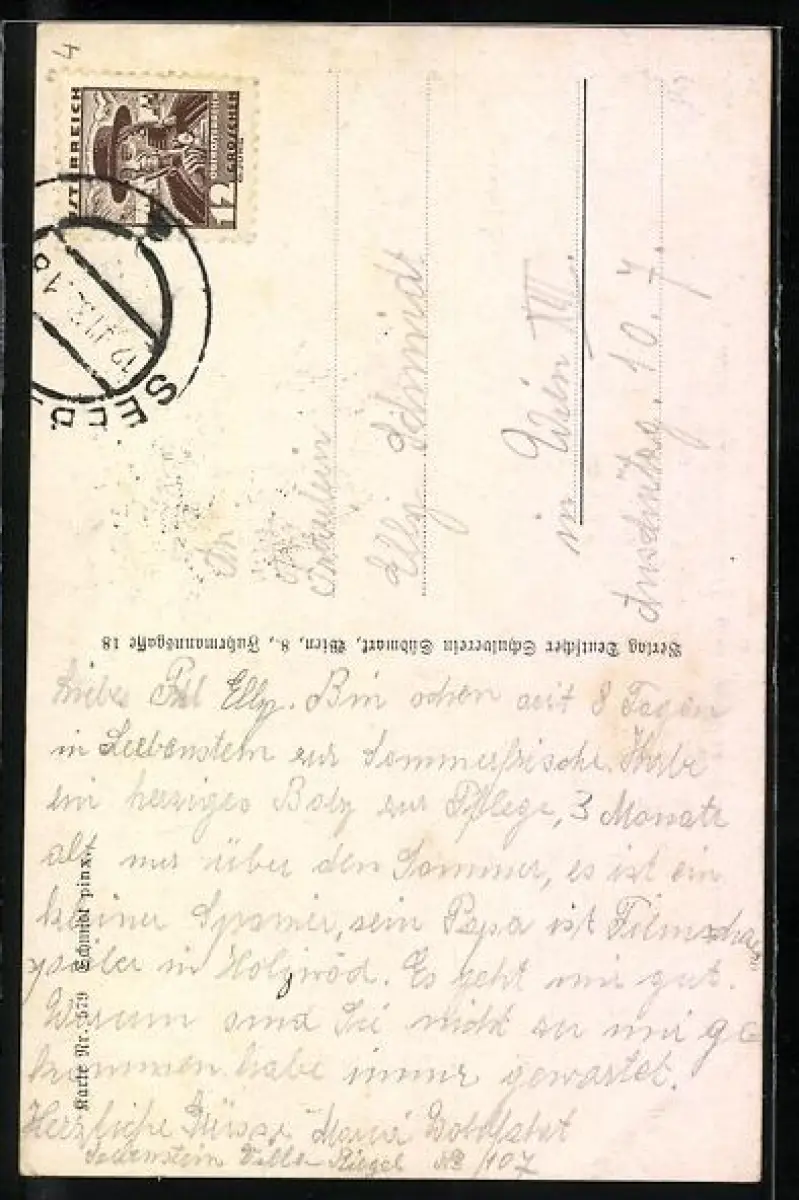 4
ÖSTERREICH
12 GROSCHEN
SEEB
An
Fräulein
Elly Schmidt
in Wien XIII.
10.7.
Verlag Deutscher Schulverein Südmark, Wien, 8., Fuhrmannsgasse 18
Karte Nr. 579 Schmidt pinx.
Liebes Frl Elly. Bin schon seit 8 Tagen
in Seebenstein zur Sommerfrische. Habe
ein herziges Baby zur Pflege, 3 Monate
alt nur über den Sommer, es ist ein
kleiner Spanier, sein Papa ist Filmschau
spieler in Holywod. Es geht mir gut.
Warum sind Sie nicht zu mir ge
kommen habe immer gewartet.
Herzliche Grüsse Maria
Seebenstein Villa Riegel No 107